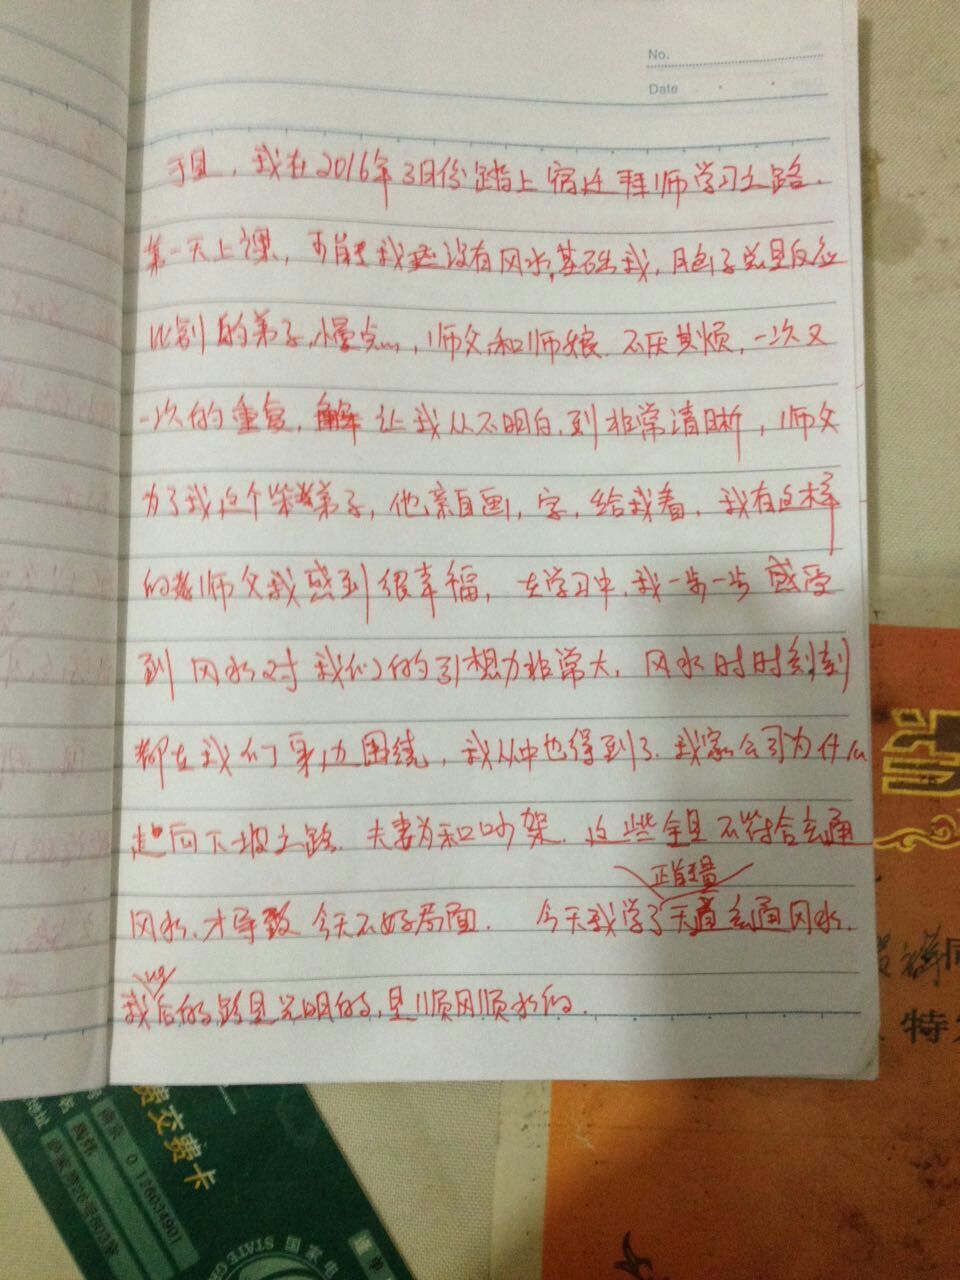 No.
Date
于是，我在2016年3月份踏上宿迁拜师学习之路.
第一天上课，可能我没有风水基础，脑子总是反应
比别的弟子慢点，师父和师娘.不厌其烦，一次又
一次的重复，让我从不明白，到非常清晰，师父
为了我这个笨弟子，他亲自画，字，给我看，我有这样
的师父我感到很幸福，在学习中，我一步一步感受
到风水对我们的引想力非常大，风水时时刻刻
都在我们身边围绕，我从中也得到了.我家公司为什么
走向下坡之路.夫妻为和吵架.这些全是不符合玄通
风水，才导致今天不好局面. 今天我学了正能量天道玄通风水.
我以后的路是光明的，是顺风顺水的.
费交费卡
地址
0126034901
STATE
国家电
特